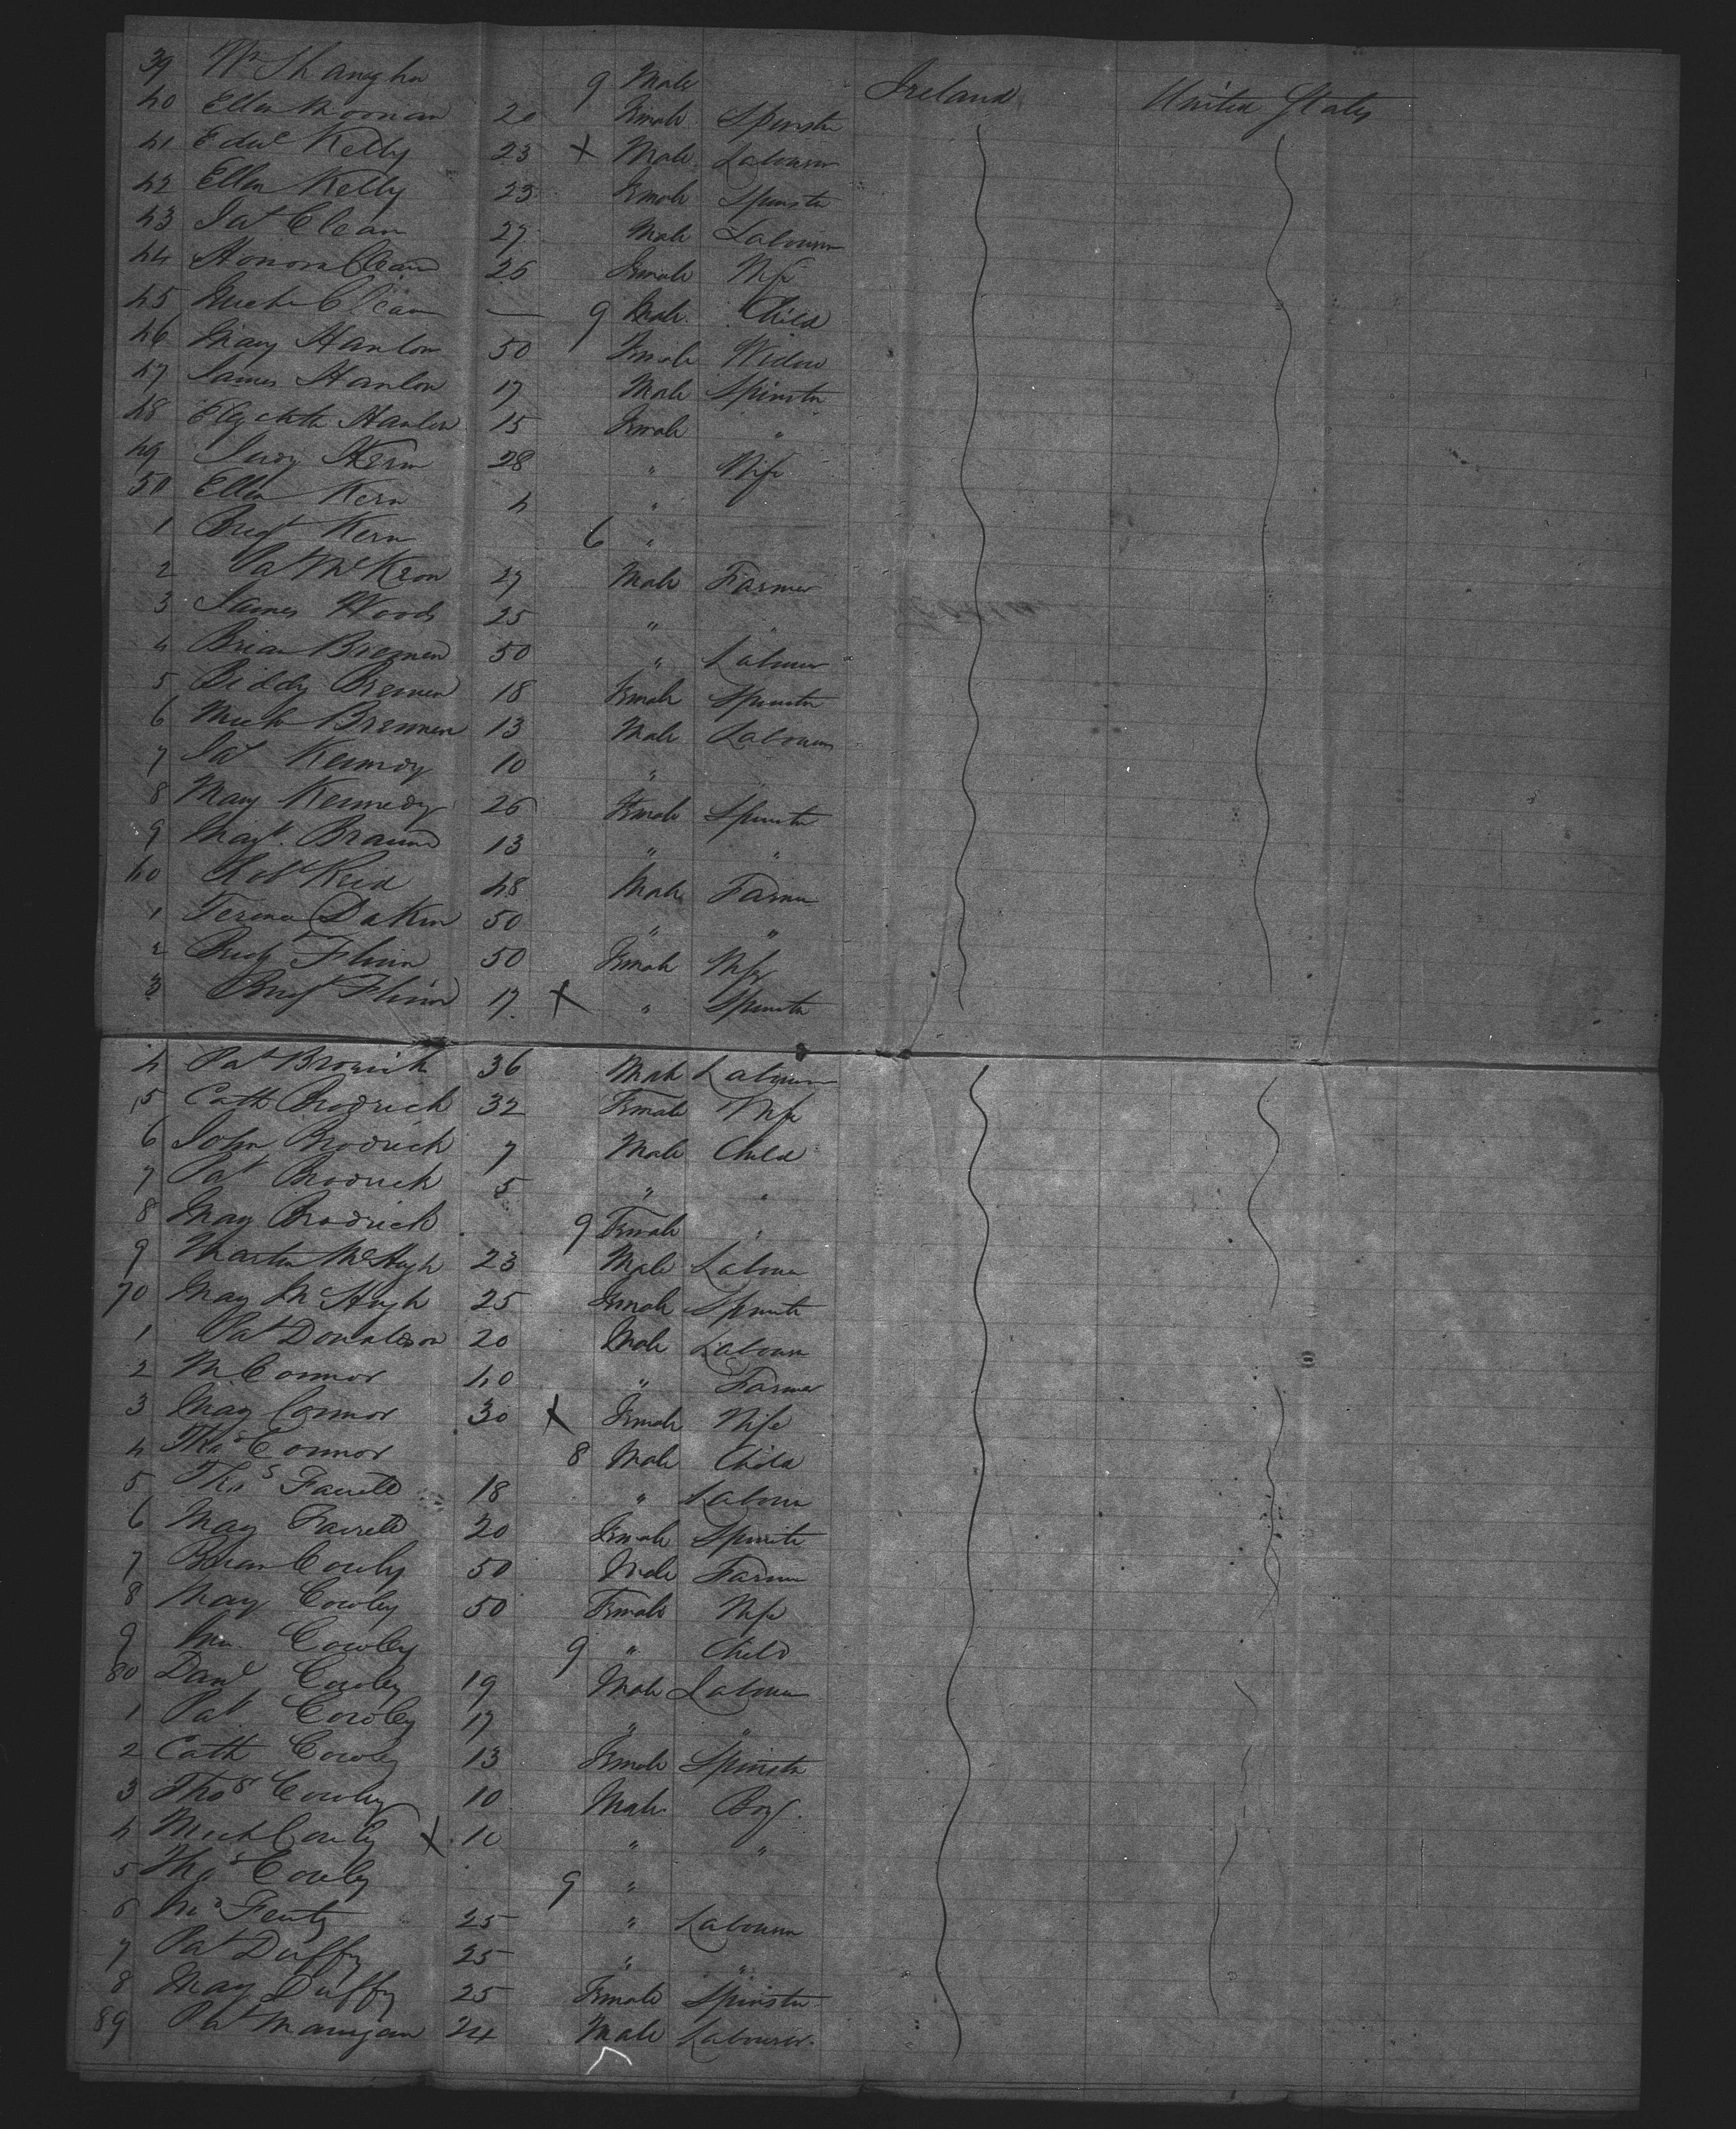 39 Wm Shaugho 9 Male Ireland United States
40 Ellen Noonan 20 Female Spinster
41 Edwd Kelly 23 X Male Labourer
42 Ellen Kelly 23 Female Spinster
43 Pat Clean 27 Male Labourer
44 Honora Clean 26 Female Wife
45 Mich Clean — 9 Male Child
46 Mary Hanlon 50 Female Widow
47 James Hanlon 17 Male Spinster
48 Elizabeth Hanlon 15 Female "
49 Judy Kern 28 " Wife
50 Ellen Kern 4 "
1 Bridgt Kern 6 "
2 Pat McKeon 27 Male Farmer
3 James Woods 25 " "
4 Brian Brennen 50 " Labourer
5 Biddy Brennen 18 Female Spinster
6 Mich Brennen 13 Male Labourer
7 Pat Kennedy 10 " "
8 Mary Kennedy 26 Female Spinster
9 Margt 13 " "
60 Robt Reid 48 Male Farmer
1 Dakin 50 " "
2 Bridgt Flinn 50 Female Wife
3 Bridgt Flinn 17 X " Spinster
4 Pat Brodrick 36 Male Labourer
5 Cath Brodrick 32 Female Wife
6 John Brodrick 7 Male Child
7 Pat Brodrick 5 " "
8 Mary Brodrick 9 Female "
9 Martin McHugh 23 Male Labourer
70 Mary McHugh 25 Female Spinster
1 Pat Donaldson 20 Male Labourer
2 M Connor 40 " Farmer
3 Mary Connor 30 X Female Wife
4 Thos Connor 8 Male Child
5 Thos Farrell 18 " Labourer
6 Mary Farrell 20 Female Spinster
7 Brian Cowley 50 Male Farmer
8 Mary Cowley 50 Female Wife
9 Cowley 9 " Child
80 Danl Cowley 19 Male Labourer
1 Pat Cowley 17 " "
2 Cath Cowley 13 Female Spinster
3 Thos Cowley 10 Male Boy
4 Mich Cowley X 10 " "
5 Thos Cowley 9 "
6 25 " Labourer
7 Pat Duffy 25 " "
8 Mary Duffy 25 Female Spinster
89 Pat Mangan 24 Male Labourer